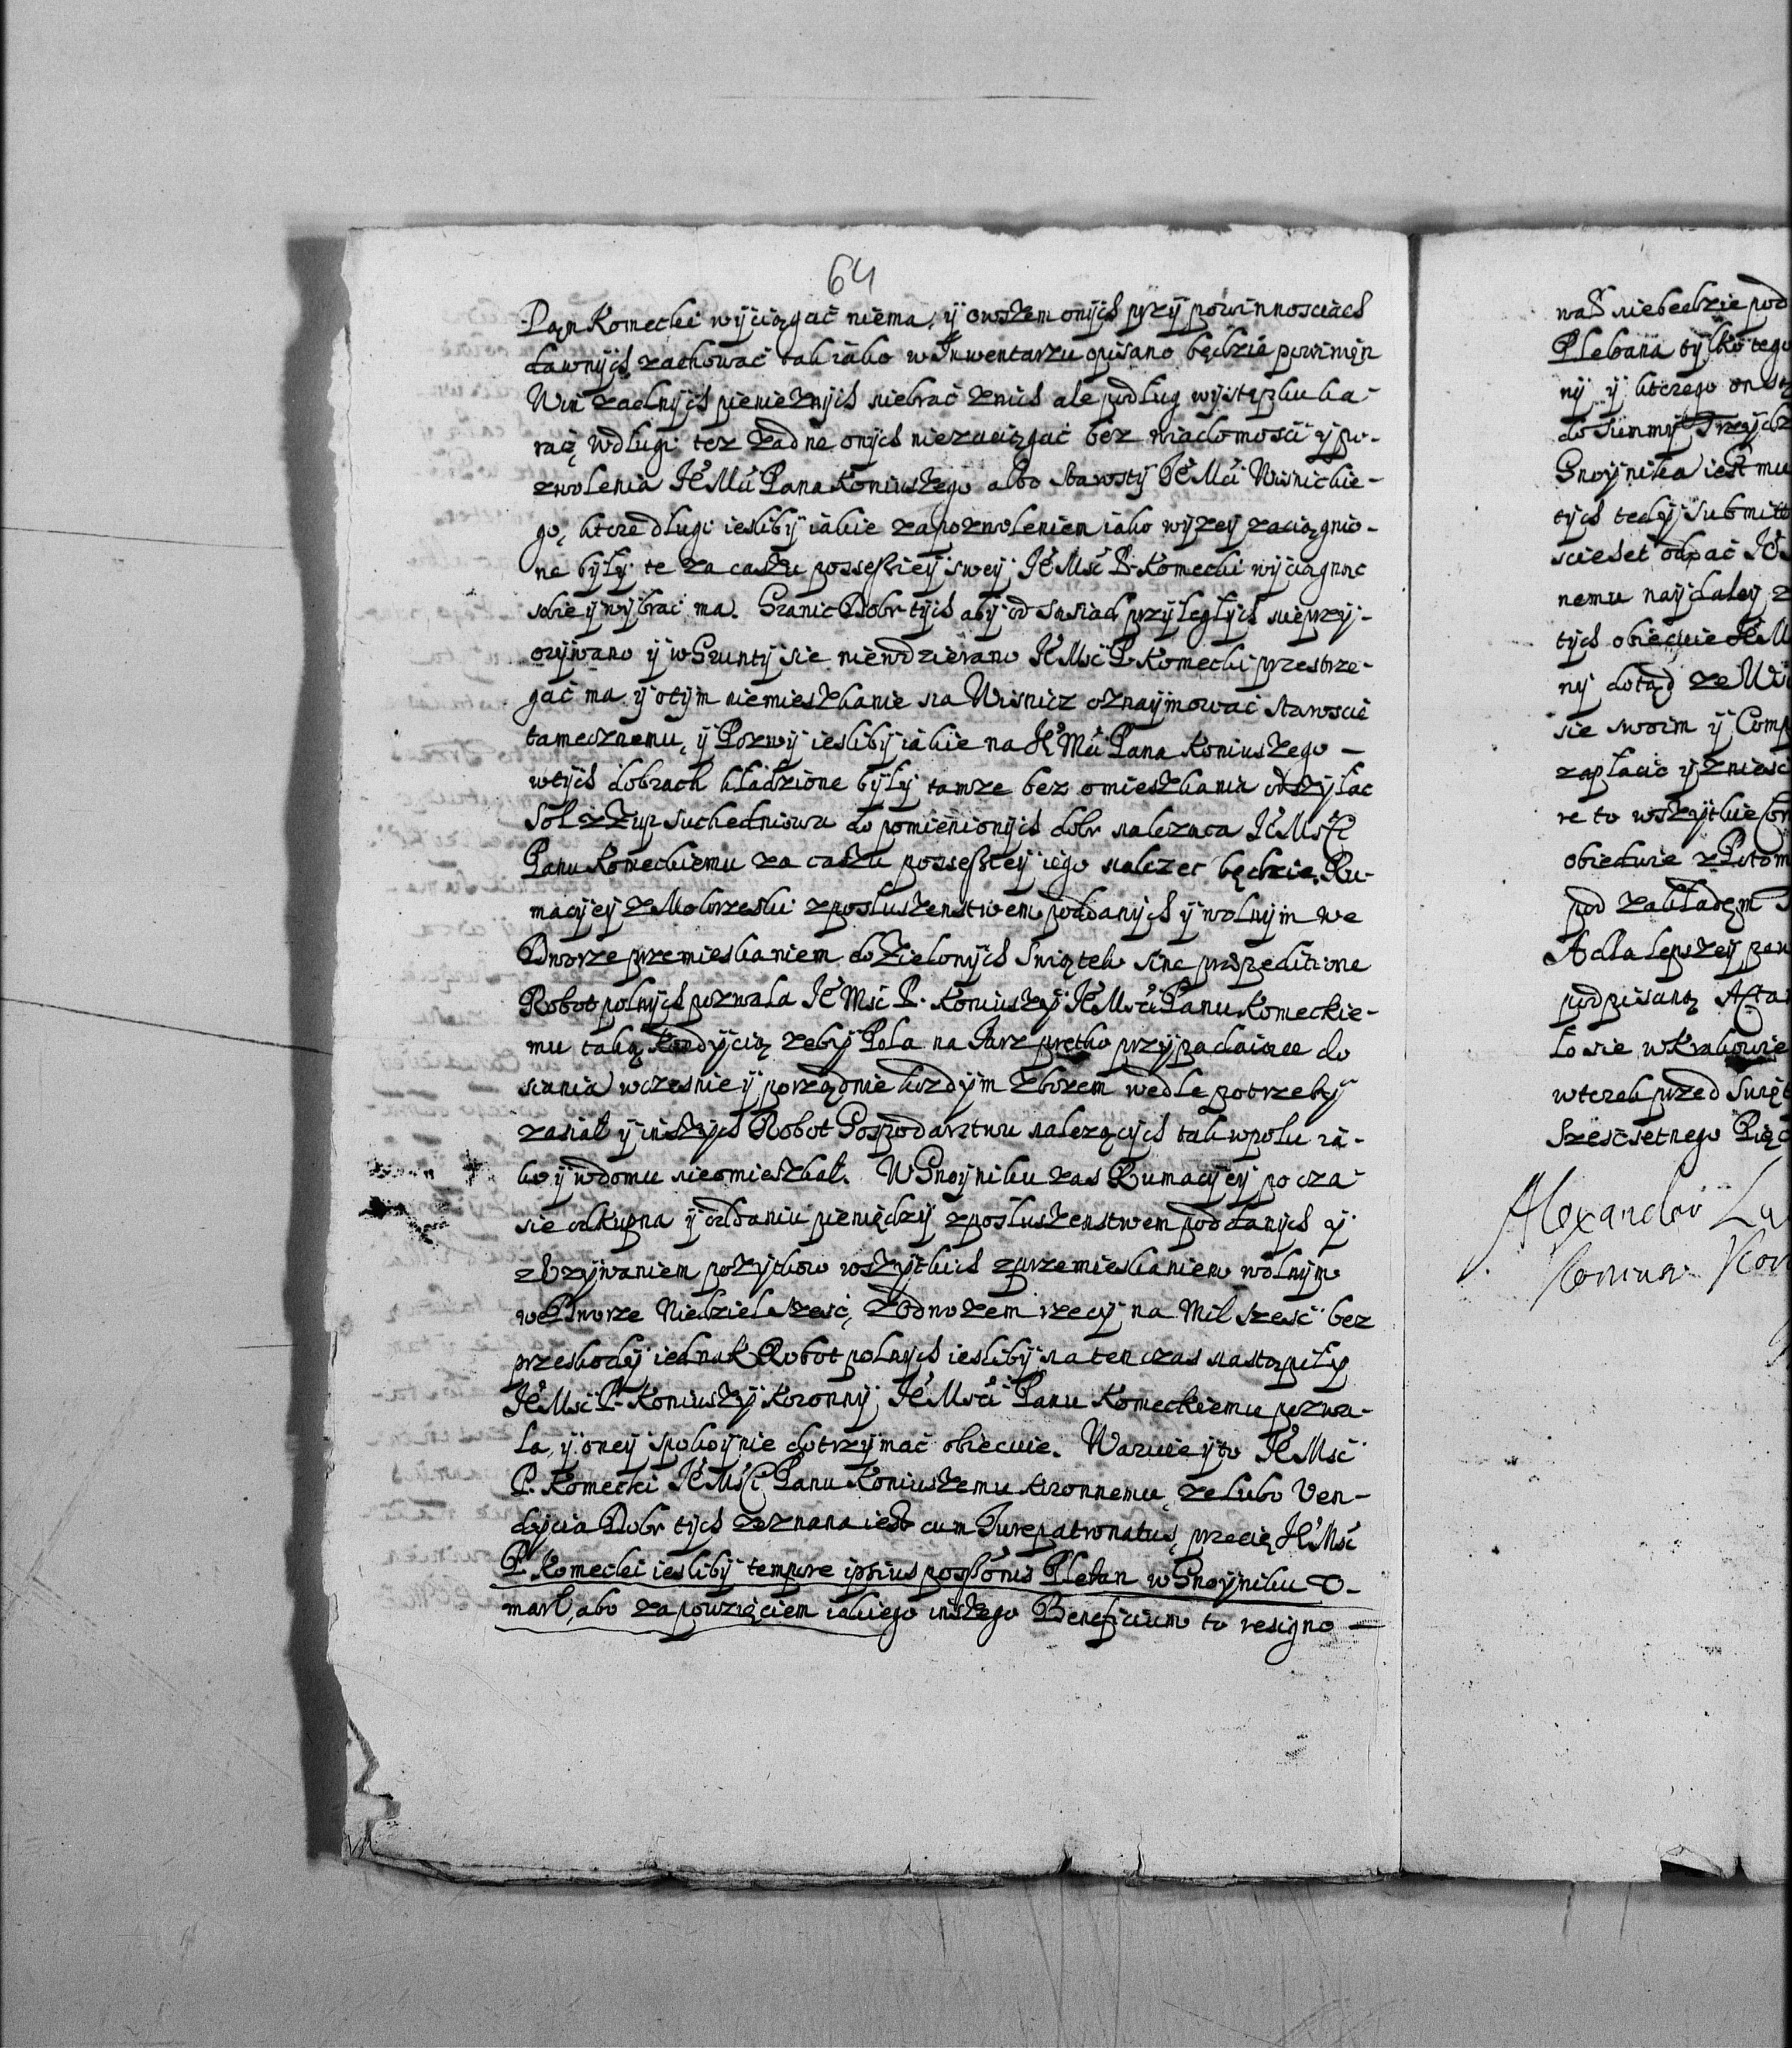 64
Pąn Komecki wyciągać niema, y owszem onych przy powinnosciach
dawnych zachować tak iako w Inwentarzu opisano będzie powinien
Win zadnych pieniežnych niebrać znich ale podług występku ka-
rać, wdługi tez żadne onych niezaciągać bez wiadomosci y po-
zwolenia JE Mci Pana Koniuszego albo Starosty JE Mci Wisnickie-
go, ktore długi iesliby iakie zapozwoleniem iako wyzey zaciągnio-
ne były te za czasu possessiey swey JE Msć P. Komecki wyciągnąc
sobie y wybrać ma. Granic Dobr tych aby od Sąsiad przyległych nieprzy-
orywano y w Grunty sie niewdzierano JE Msć P. Komecki przestrze-
gać ma y otym niemieszkanie na Wisnicz oznaymować Staroscie
tamecznemu, y Pozwy iesliby iakie na JE Mci Pana Koniuszego –
wtych dobrach kładzione były tamze bez omieszkania odsyłac
Sol z Zup Suchedniowa do pomienionych dobr nalezaca JE Msci
Panu Komeckiemu za czasu possessiey iego nalezec będzie. Ru-
macyey z Mokrzeski zposłuszenstwem poddanych y wolnym we
Dworze przemieskaniem do Zielonych Swiątek sine praepeditione
Robot polnych pozwala JE Msć P. Koniuszy JE Msci Panu Komeckie-
mu taką kondycią zeby Pola na Jarz prętko przypadaiące do
siania wczesnie y porządnie kozdym zbozem wedle potrzeby
zasiał y inszych Robot Gospodarztwu nalezących tak wpolu ia-
ko y wdomu nieomieszkał. W Gnoyniku zas Rumacyey po cza-
sie odkupna y oddaniu pieniędzy zposłuszenstwem poddanych y
zbzywaniem pozytkow wszytkich zprzemieskaniem wolnym
we Dworze Niedziel szesć, zodwozem rzeczy na Mil szesć bez
przeskody iednak Robot polnych iesliby na ten czas nastąpiły
JE Msć P. Koniuszy Koronny JE Msci Panu Komeckiemu pozwa-
la, y oney spokoynie dotrzymać obiecuie. Waruie y to JE Msć
P. Komecki JE Msci Panu Koniuszemu Koronnemu, ze lubo Ven-
dycia Dobr tych zeznana iest cum Jurepatronatus, przecię JE Msć
P. Komecki iesliby tempore ipsius possōnis Pleban w Gnoyniku v-
marł, abo zapowzięciem iakiego inszego Beneficium to resigno –
wał niebędzie pod
Plebana tylko tego
ny y ktorego on
do Summy Trzydz
Gnoynika iest mu
tych tedy submit
scieset odpać JE
nemu naydaley z
tych obiecuie JE M
ny dotąd ze Wi
sie swoim y Comp
zapłacic y zniesc
re to wszytkie
obiedwie z Potom
pod zakładem
A dla lepszey
podpisaną Acta
ło sie w Krakowie
wtorek przed Swięt
Szesćsetnego Pięć
Alexander Lu
Koniu Kor